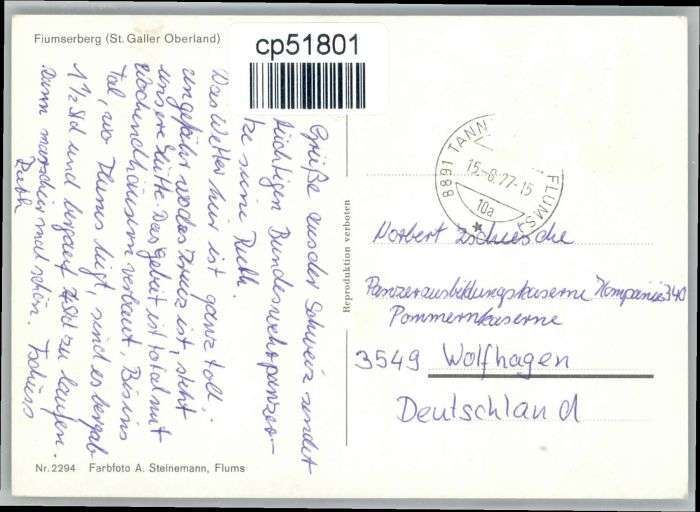 Flumserberg (St. Galler Oberland)
cp51801
Grüße aus der Schweiz sendet
tüchtigen Bundeswehrpanzer-
Ruth.
Das Wetter hier ist ganz toll.
ungefähr wo das Kreuz ist, steht
unsere Hütte. Das Gebiet ist total mit
Wochenendhäusern verbaut. Bis ins
Tal, wo Flums liegt, sind es bergab
1 1/2 Std und bergauf Std zu laufen.
Dann marschier mal schön. Tschüss
Ruth
Nr. 2294 Farbfoto A. Steinemann, Flums
Reproduktion verboten
8891 TANN FLUMS
15.-8.77-15
10a
Norbert Zschiesche
Panzerausbildungskaserne Kompanie 340
Pommernkaserne
3549 Wolfhagen
Deutschland